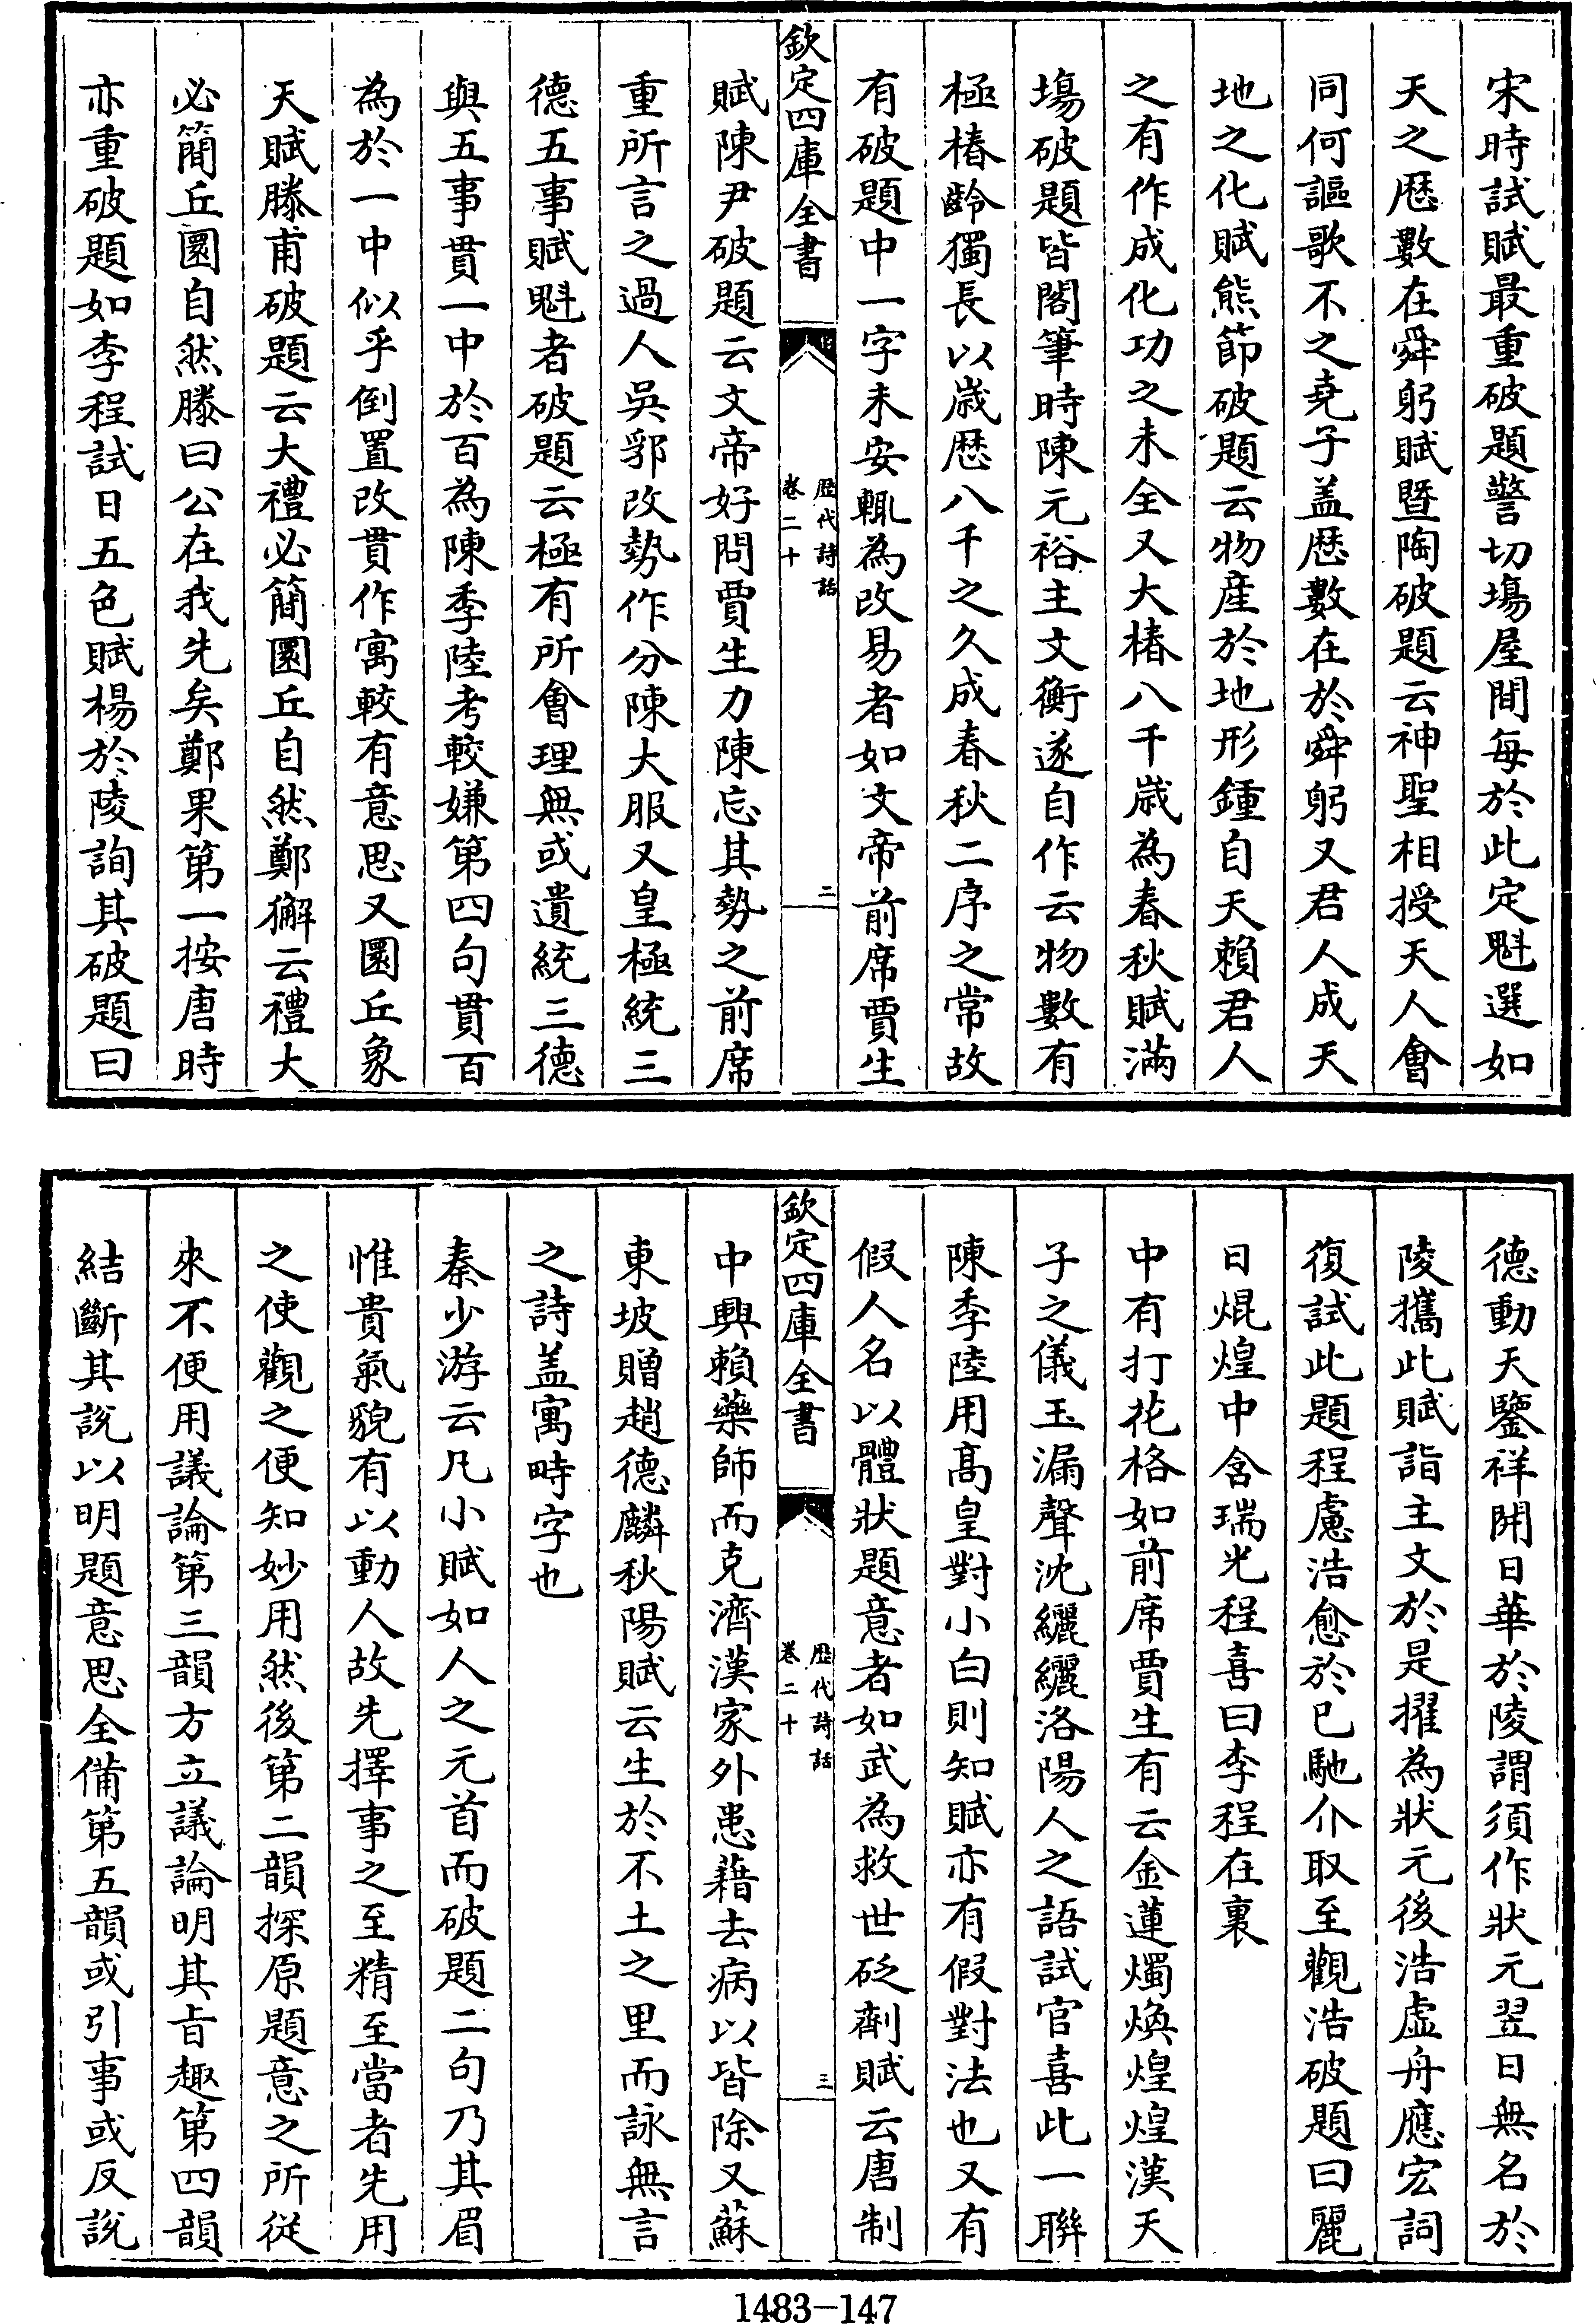 宋時試賦最重破題警切塲屋間每於此定魁選如
天之厯數在舜躬賦暨陶破題云神聖相授天人會
同何謳歌不之堯子盖厯數在於舜躬又君人成天
地之化賦熊節破題云物産於地形鍾自天賴君人
之有作成化功之未全又大椿八千歳為春秋賦滿
塲破題皆閣筆時陳元裕主文衡遂自作云物數有
極椿齡獨長以歳厯八千之久成春秋二序之常故
有破題中一字未安輒為改易者如文帝前席賈生
欽定四庫全書
歴代詩話
卷二十
二
賦陳尹破題云文帝好問賈生力陳忘其勢之前席
重所言之過人吳郛改勢作分陳大服又皇極統三
德五事賦魁者破題云極有所會理無或遺統三德
與五事貫一中於百為陳季陸考較嫌第四句貫百
為於一中似乎倒置改貫作寓較有意思又圜丘象
天賦滕甫破題云大禮必簡圜丘自然鄭獬云禮大
必簡丘圜自然滕曰公在我先矣鄭果第一按唐時
亦重破題如李程試日五色賦楊於陵詢其破題曰
德動天鑒祥開日華於陵謂須作狀元翌日無名於
陵攜此賦詣主文於是擢為狀元後浩虛舟應宏詞
復試此題程慮浩愈於已馳介取至觀浩破題曰麗
日焜煌中含瑞光程喜曰李程在裏
中有打花格如前席賈生有云金蓮燭煥煌煌漢天
子之儀玉漏聲沈纚纚洛陽人之語試官喜此一聯
陳季陸用高皇對小白則知賦亦有假對法也又有
假人名以體狀題意者如武為救世砭劑賦云唐制
欽定四庫全書
歴代詩話
卷二十
三
中興賴藥師而克濟漢家外患藉去病以皆除又蘇
東坡贈趙德麟秋陽賦云生於不土之里而詠無言
之詩盖寓時字也
秦少游云凡小賦如人之元首而破題二句乃其眉
惟貴氣貌有以動人故先擇事之至精至當者先用
之使觀之便知妙用然後第二韻探原題意之所從
來不便用議論第三韻方立議論明其旨趣第四韻
結斷其說以明題意思全備第五韻或引事或反說
1483-147